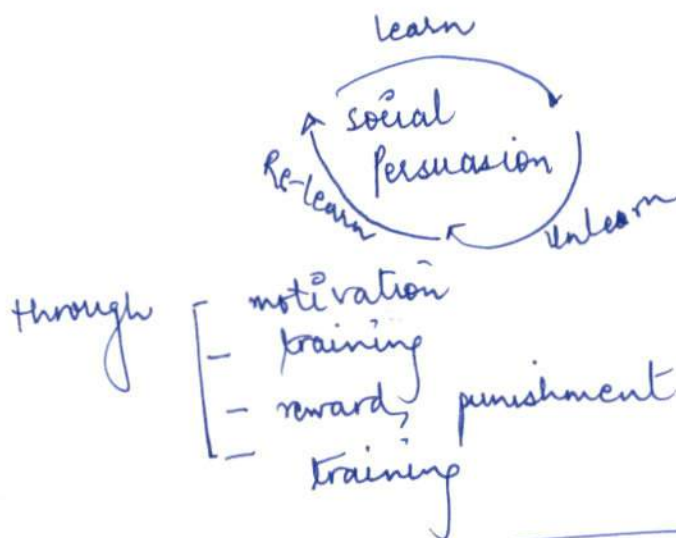 learn
social
Persuasion
Re-learn
Unlearn
through
motivation
- training
- reward, punishment
- training